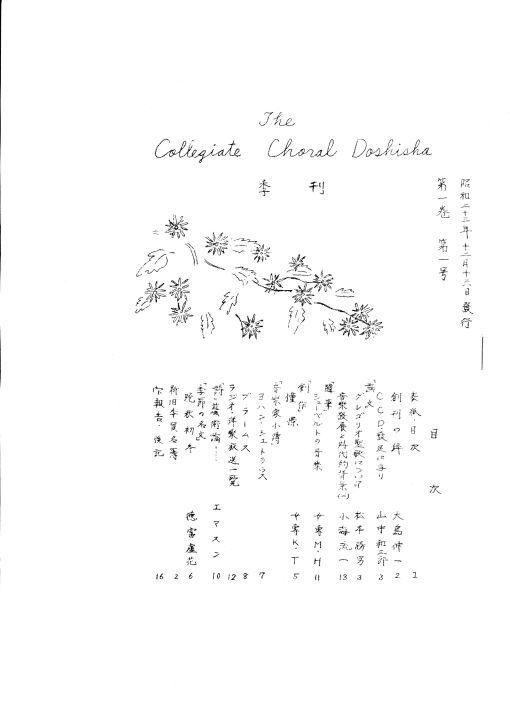 The
Collegiate Choral Doshisha
季刊
昭和二十三年十二月十六日發行
第一巻 第一号
目次
表紙・目次 1
創刊の辞 大島伸一 2
CCD・發足に当り 山中和三郎 3
論文
グレゴリオ聖歌について 松本勝男 3
音楽發展と時代的背景(一) 小海流一 13
隨筆
シューベルトの音楽 女専M・H 11
創作
憧憬 女専K・T 5
音楽家小傳
ヨハン・シュトラウス 7
ブラームス 8
ラジオ・洋楽放送一覧 12
詩と藝術論 エマスン 10
季節の名文
晩秋初冬 徳富蘆花 6
新旧部員名簿 2
部報告・後記 16